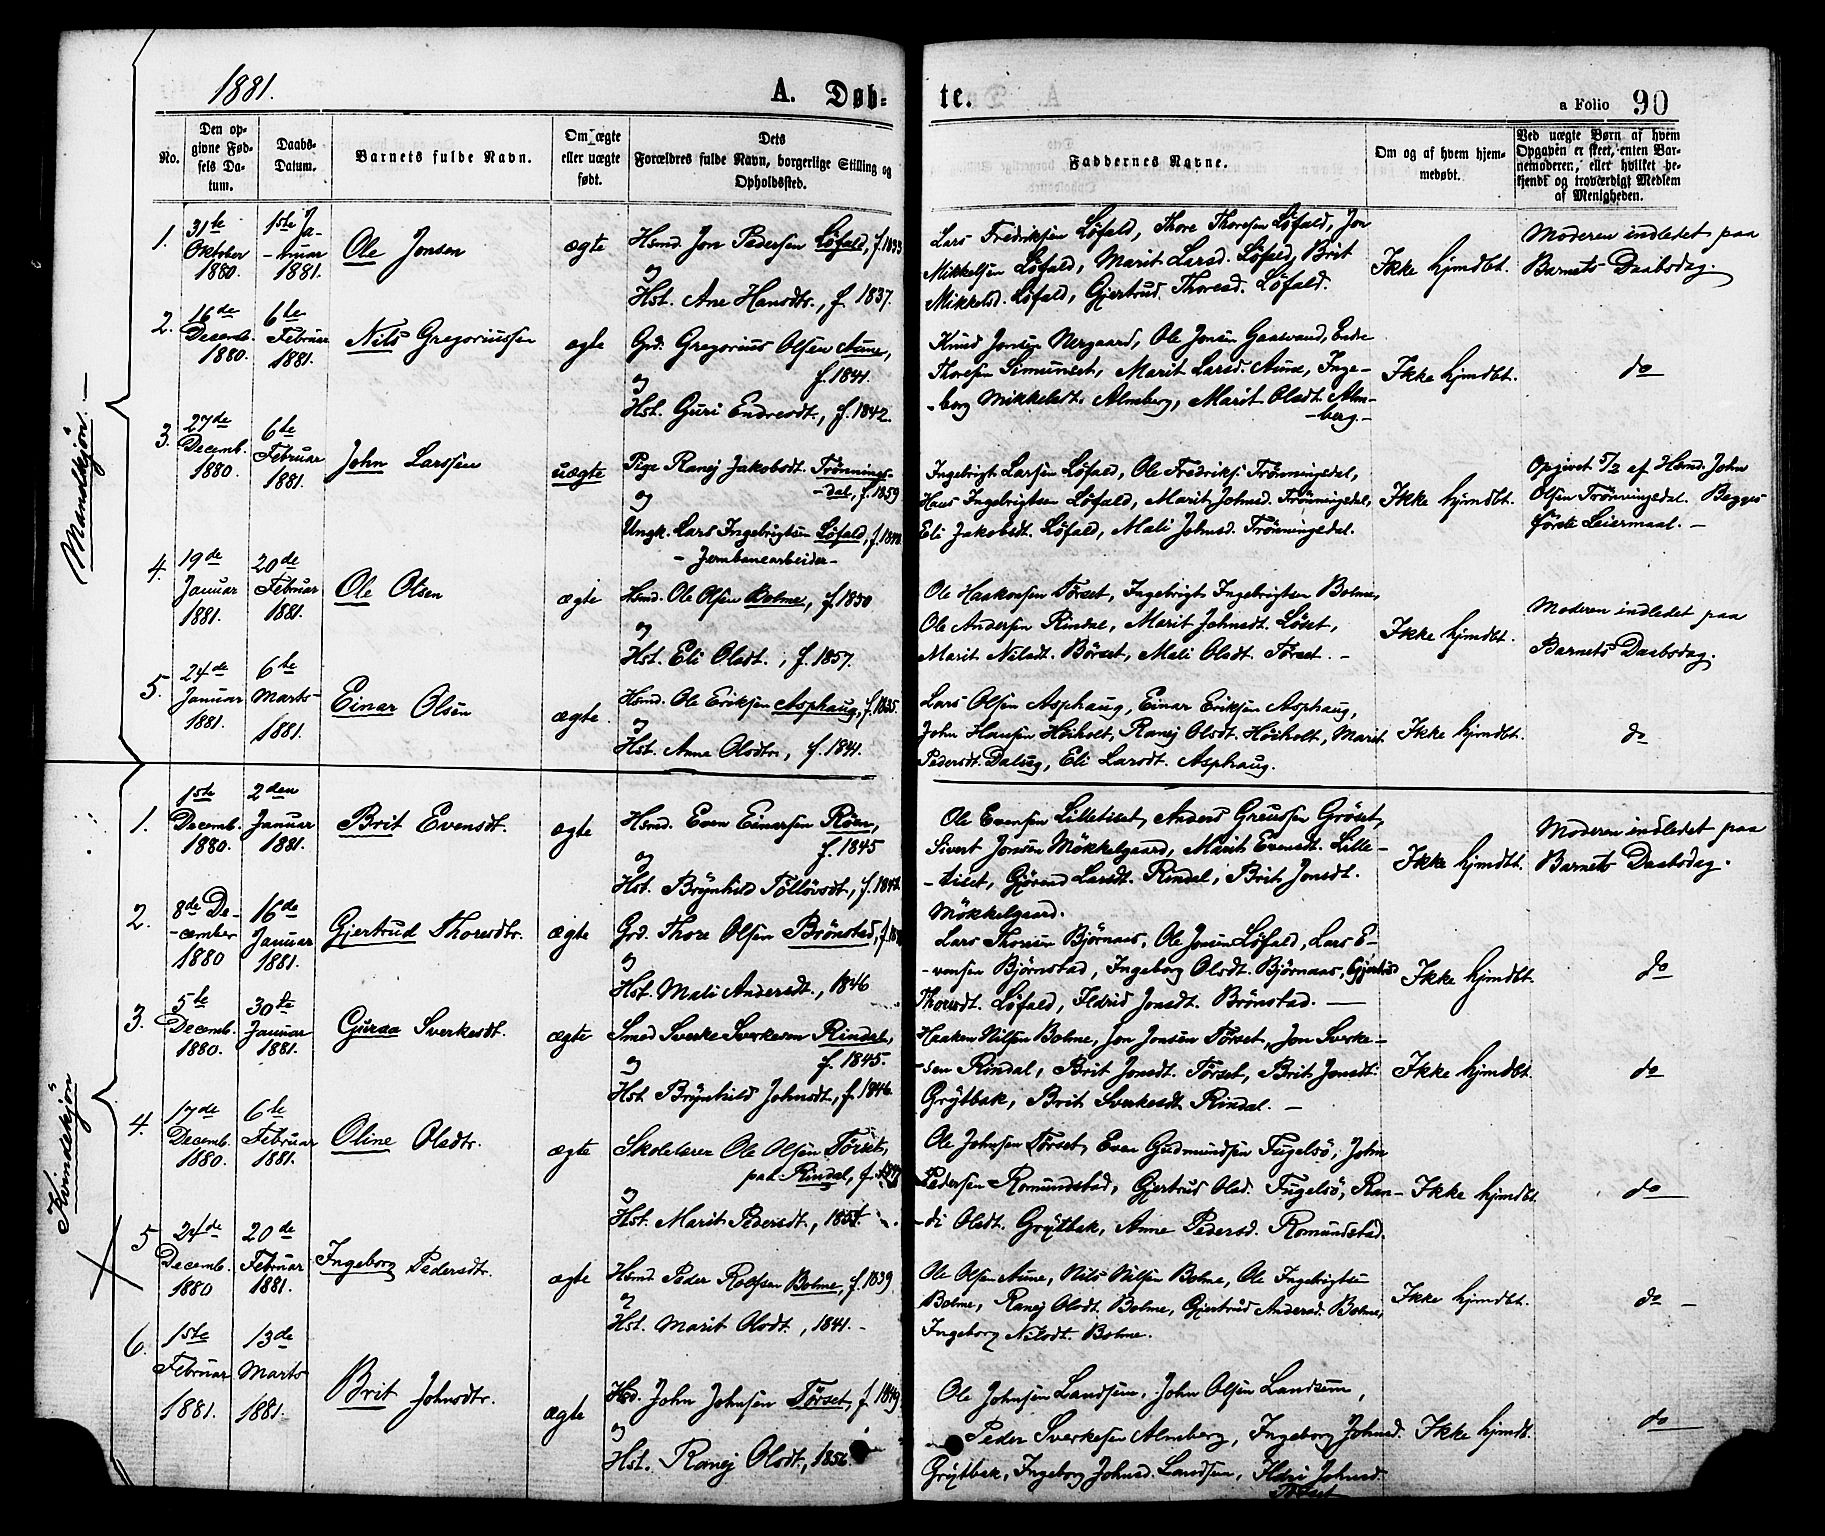 1881.
A. Døb-
te.
a Folio 90
No.
Den op-
givne Fød-
sels Da-
tum.
Daabs-
Datum.
Barnets fulde Navn.
Om ægte
eller uægte
født.
Dets
Forældres fulde Navn, borgerlige Stilling og
Opholdssted.
Faddernes Navne.
Om og af hvem hjem-
medøbt.
Ved uægte Børn af hvem
Opgaven er skeet, enten Bar-
nemoderen, eller hvilket be-
kjendt og troværdigt Medlem
af Menigheden.
Mandkjøn. -
1.
31te
Oktober
1880.
1ste Ja-
-nuar
1881.
Ole Jonsen
ægte
Hsmd. Jon Pedersen Løfald, f. 1833
og
Hst. Ane Hansdtr., f. 1837.
Lars Fredriksen Løfald, Thore Thoresen Løfald, Jon
Mikkelsen Løfald, Marit Larsd. Løfald, Brit
Mikkelsd. Løfald, Gjertrud Thoresd. Løfald.
Ikke hjmdbt.
Moderen indledet paa
Barnets Daabsdag.
2.
16de
Decemb.
1880.
6te
Februar
1881.
Nils Gregoriussen
ægte
Grd. Gregorius Olsen Aune,
f. 1841.
og
Hst. Guri Endresdt., f. 1842.
Knud Jonsen Nergaard, Ole Jonsen Gaasvand, Endre
Thoresen Simunset, Marit Larsd. Aune, Inge-
-borg Mikkelsdt. Almberg, Marit Olsdt. Alm-
-berg-
Ikke hjmdbt.
do
3.
27de
Decemb.
1880.
6te
Februar
1881.
John Larssen
uægte
Pige Ranej Jakobsdt. Trønnings-
-dal, f. 1859
og
Ungk. Lars Ingebrigtsen Løfald, f.
- Jernbanearbeider -
Ingebrigt Larsen Løfald, Ole Fredriks. Trønningsdal,
Hans Ingebrigtsen Løfald, Marit Johnsd. Trønningsdal,
Eli Jakobsdt. Løfald, Mali Johnsd. Trønningsdal.
Ikke hjmdbt.
Opgivet 5/2 af Hsmd. John
Olsen Trønningsdal. Begges
første Leiermaal. -
4.
19de
Januar
1881.
20de
Februar
1881.
Ole Olsen
ægte
Hsmd. Ole Olsen Bolme, f. 1850
og
Hst. Eli Olsdt., f. 1857.
Ole Haakonsen Tørset, Ingebrigt Ingebrigtsen Bolme,
Ole Andersen Rindal, Marit Johnsdt. Løset,
Marit Nilsdt. Børset, Mali Olsdt. Tørset. -
Ikke hjmdbt.
Moderen indledet paa
Barnets Daabsdag.
5.
24de
Januar
1881.
6te
Marts-
1881.
Einar Olsen
ægte.
Hsmd. Ole Eriksen Asphaug, f. 1835.
og
Hst. Anne Olsdtr., f. 1841.
Lars Olsen Asphaug, Einar Eriksen Asphaug,
John Hansen Høiholt, Ranej Olsdt. Høiholt, Marit
Pedersdt. Dalseg, Eli Larsdt. Asphaug.
Ikke hjmdbt.
do
Kvindekjøn
1.
1ste
Decemb.
1880.
2den
Januar
1881.
Brit Evensdt.
ægte
Hsmd. Even Einarsen Røen,
f. 1845
og
Hst. Brynhild Tølløvsdt, f.
Ole Evensen Lilletiset, Anders Greussen Grøset,
Sivert Jonsen Møkkelgaard, Marit Evensdt. Lille-
-tiset, Gjørend Larsdt. Rindal, Brit Jonsdt.
Møkkelgaard.
Ikke hjmdbt.
Moderen indledet paa
Barnets Daabsdag.
2.
8de De-
-cember
1880
16de
Januar
1881.
Gjertrud Thoresdtr.
ægte
Grd. Thore Olsen Brønstad,
og
Hst. Mali Andersdt., 1846
Lars Thoresen Bjørnaas, Ole Jonsen Løfald, Lars E-
-vensen Bjørnstad, Ingeborg Olsdt. Bjørnaas, Gjertrud
Thoresdt. Løfald, Ildrid Jonsdt. Brønstad. -
Ikke hjmdbt.
do
3.
5te
Decemb.
1880.
30te
Januar
1881.
Guroa Sverkesdt.
ægte
Smed Sverke Sverkesen Rindal,
f. 1845.
og
Hst. Brynhild Johnsdt, f. 1846.
Haaken Nilsen Bolme, Jon Jonsen Tørset, Jon Sverke-
-sen Rindal, Brit Jonsdt. Tørset, Brit Jonsdt.
Grytbak, Brit Sverkesdt. Rindal. -
Ikke hjmdbt.
do
4.
17de
Decemb.
1880.
6te
Februar
1881.
Oline Olsdtr.
ægte
Skolelærer Ole Olsen Tørset,
paa Rindal, f.
og
Hst. Marit Pedersdt., 1854.
Ole Johnsen Tørset, Even Gudmundsen Fugelsø, John
Pedersen Romundstad, Gjertrud Olsd. Fugelsø, Ran-
-di Olsdt. Grytbak, Anne Pedersd. Romundstad.
Ikke hjmdbt.
do
5
24de
Decemb.
1880
20de
Februar
1881.
Ingeborg Pedersdtr.
ægte
Hsmd. Peder Rolfsen Bolme, f. 1839
og
Hst. Marit Olsdt., 1841. -
Ole Olsen Aune, Nils Nilsen Bolme, Ole Ingebrigtsen
Bolme, Ranej Olsdt. Bolme, Gjertrud Andersd. Bolme,
Ingeborg Nilsdt. Bolme.
Ikke hjmdbt.
do -
6.
1ste
Februar
1881.
13de
Marts
1881.
Brit Johnsdtr.
ægte
Hsd. John Johnsen Tørset, f. 1849
og
Hst. Ranej Olsdt., 1856
Ole Johnsen Landsem, John Olsen Landsem,
Peder Sverkesen Almberg, Ingeborg Johnsd.
Grytbak, Ingeborg Johnsd. Landsem, Ildri Johnsd.
Tørset
Ikke hjmdt.
do